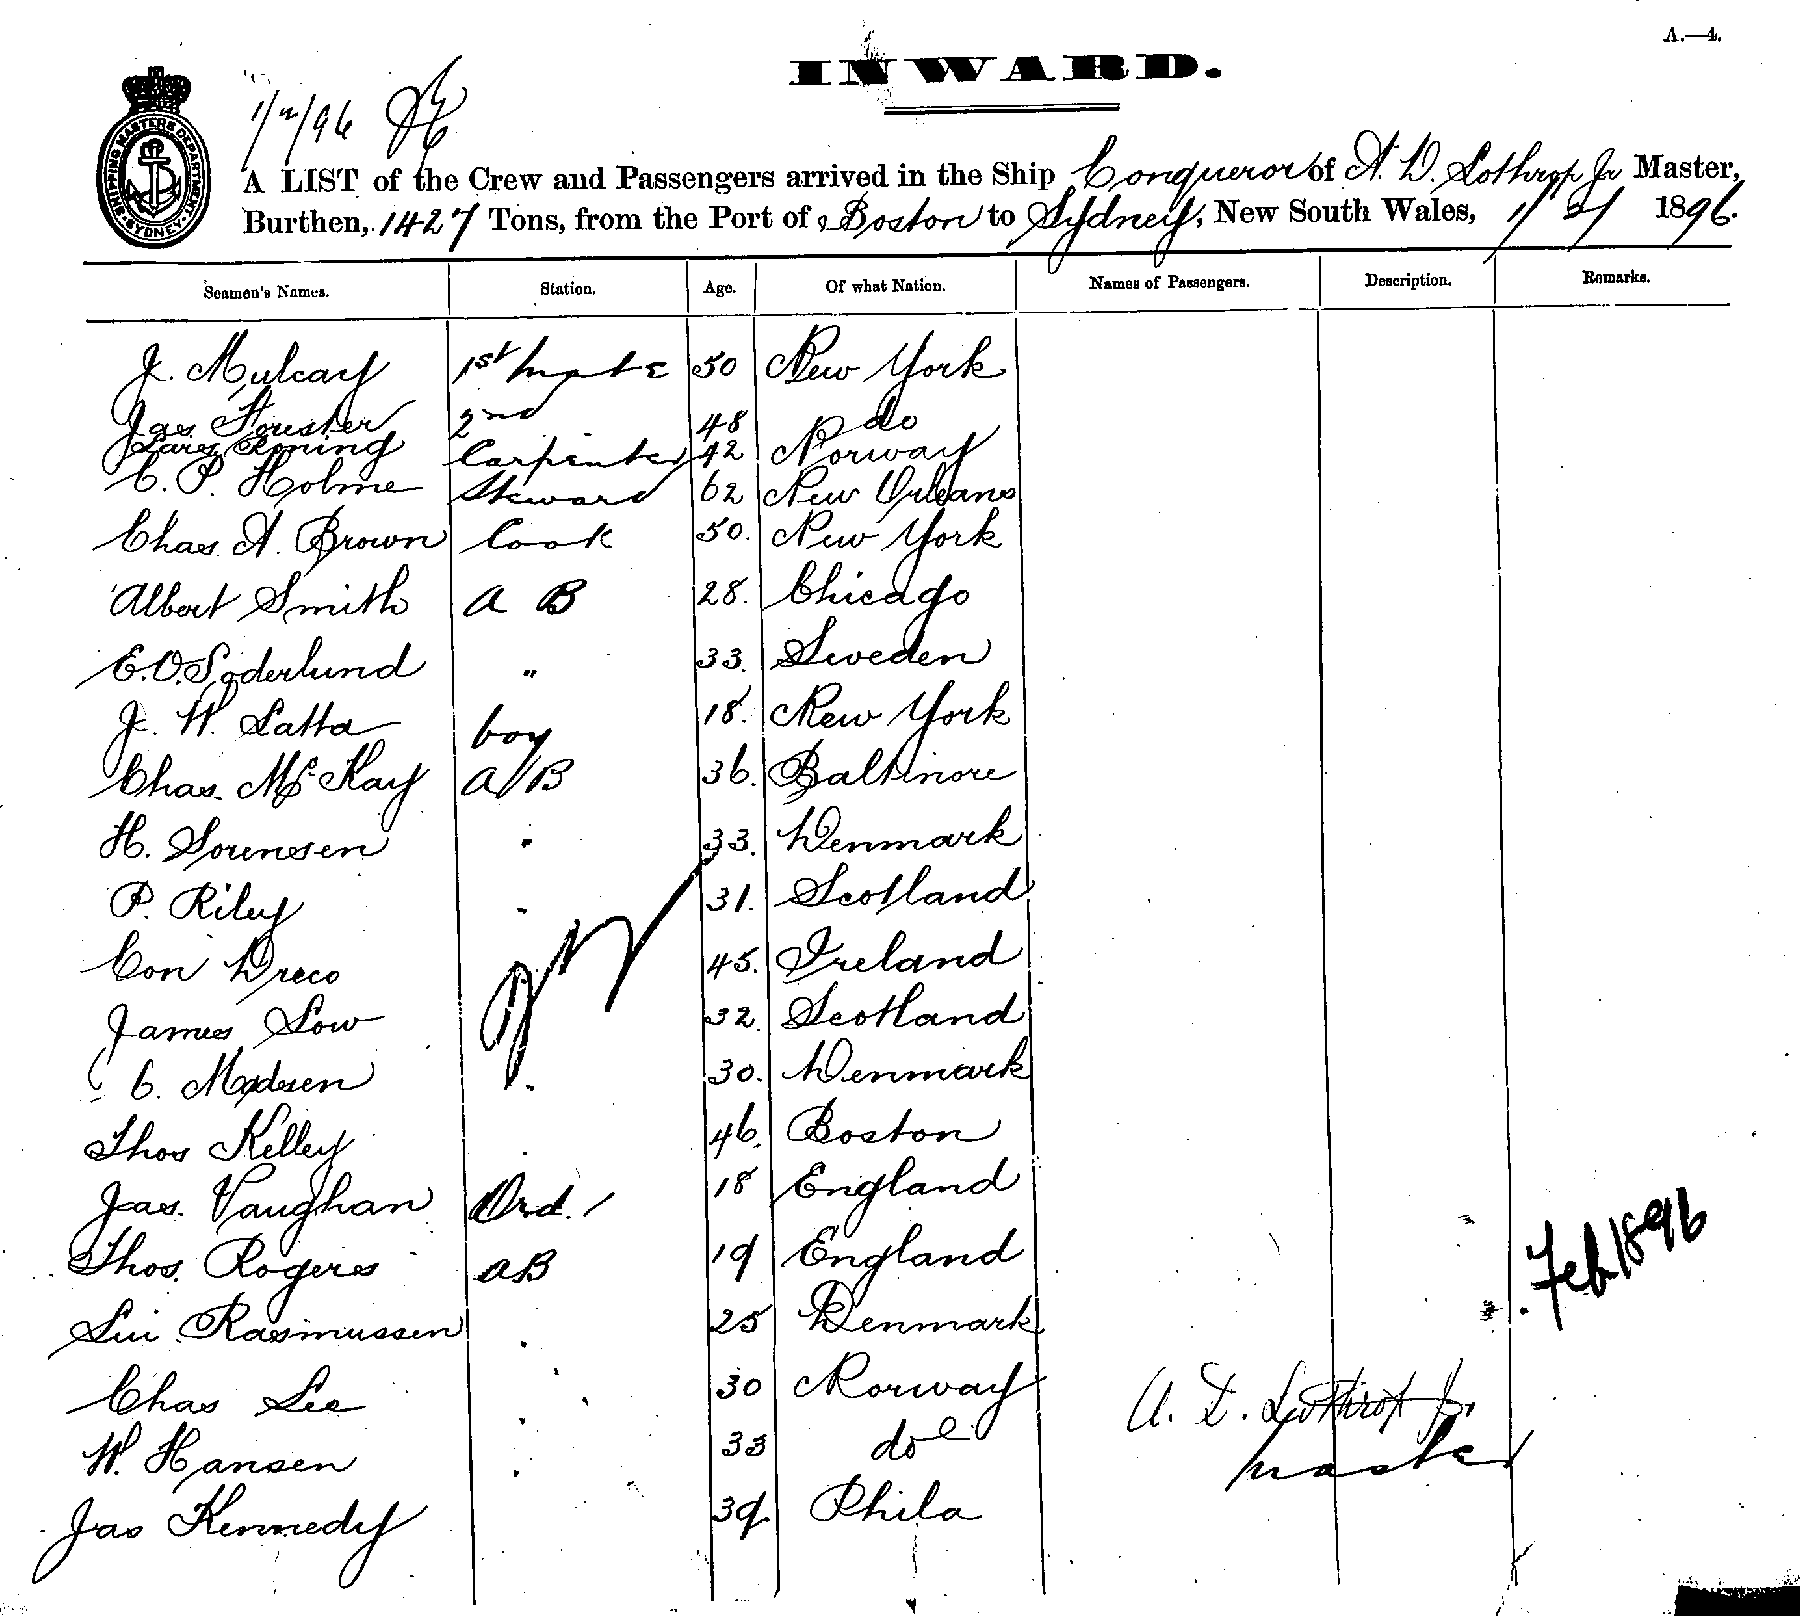 A.—4.
INWARD.
1/2/96
SHIPPING MASTERS DEPARTMENT SYDNEY
A LIST of the Crew and Passengers arrived in the Ship Conqueror of A. D. Lothrop Jr Master,
Burthen, 1427 Tons, from the Port of Boston to Sydney, New South Wales, 1/2/ 1896.
Seamen's Names. Station. Age. Of what Nation. Names of Passengers. Description. Remarks.
J. Mulcay 1st mate 50 New York
Jas Forester 2nd 48 do
Lars Carpenter 42 Norway
C. P. Holme Steward 62 New Orleans
Chas A. Brown Cook 50. New York
Albert Smith A B 28. Chicago
E. O. Soderlund " 33. Sweden
J. W. Latta boy 18. New York
Chas. McKay A B 36. Baltimore
H. Sorensen " 33. Denmark
P. Riley " 31. Scotland
Con Dreco 45. Ireland
James Low 32. Scotland
C. Madsen " 30. Denmark
Thos Kelley 46. Boston
Jas. Vaughan Ord. 18 England
Thos. Rogers AB 19 England
Rasmussen " 25 Denmark
Chas Lee " 30 Norway
W. Hansen " 33 do
Jas Kennedy 39 Phila
Feb 1896
A. D. Lothrop Jr.
master